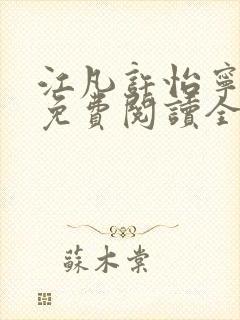 江凡許怡寧
免費閱讀全
蘇木棠